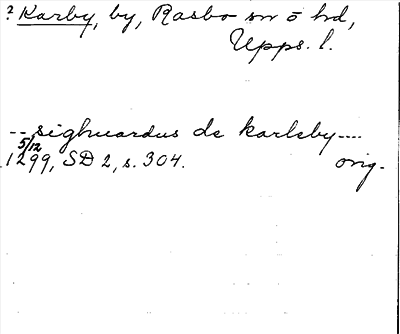 ? Karby, by, Rasbo sn ō hd,
Upps. l.
-- sighuardus de karleby ----
5/12
1299, SD 2, s. 304. orig.